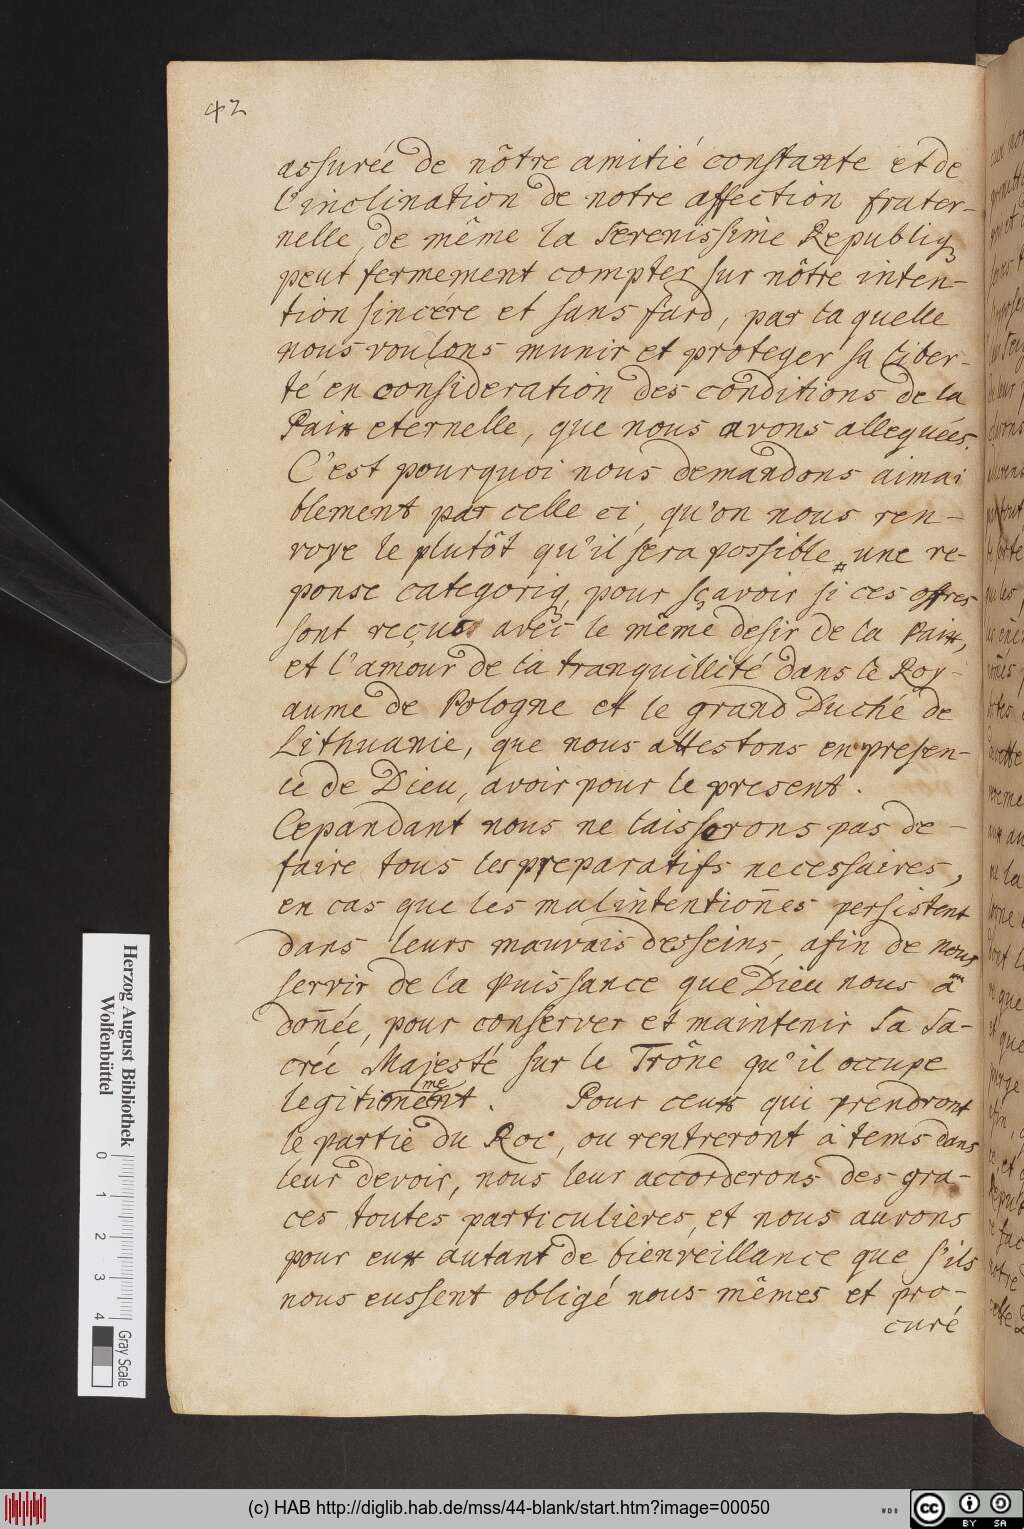 42
assurée de nôtre amitié constante et de
l'inclination de notre affection frater-
nelle, de même la Serenissime Republiq
peut fermement compter sur nôtre inten-
tion sincére et sans fard, par laquelle
nous voulons munir et proteger sa liber-
té en consideration des conditions de la
Paix eternelle, que nous avons alleguées.
C'est pourquoi nous demandons aimai
blement par celle ci, qu'on nous ren-
voye le plutôt qu'il sera possible une re-
ponse categoriq pour sçavoir si ces offres
sont reçus avec le même desir de la Paix,
et l'amour de la tranquillité dans le Roy-
aume de Pologne et le grand Duché de
Lithuanie, que nous attestons en presen-
ce de Dieu, avoir pour le present.
Cepandant nous ne laisserons pas de-
faire tous les preparatifs necessaires,
en cas que les malintentions̄es persistent
dans leurs mauvais desseins, afin de nous
servir de la puissance que Dieu nous a
doñée, pour conserver et maintenir Sa Sa-
crée Majesté sur le Trône qu'il occupe
legitimement. Pour ceux qui prendront
le partie du Roi, ou rentreront à tems dans
leur devoir, nous leur accorderons des gra-
ces toutes particulières, et nous aurons
pour eux autant de bienveillance que s'ils
nous eussent obligé nous mêmes et pro-
curé
Herzog August Bibliothek
Wolfenbüttel
0 1 2 3 4
Gray Scale
(c) HAB http://diglib.hab.de/mss/44-blank/start.htm?image=00050
WDB
cc BY SA